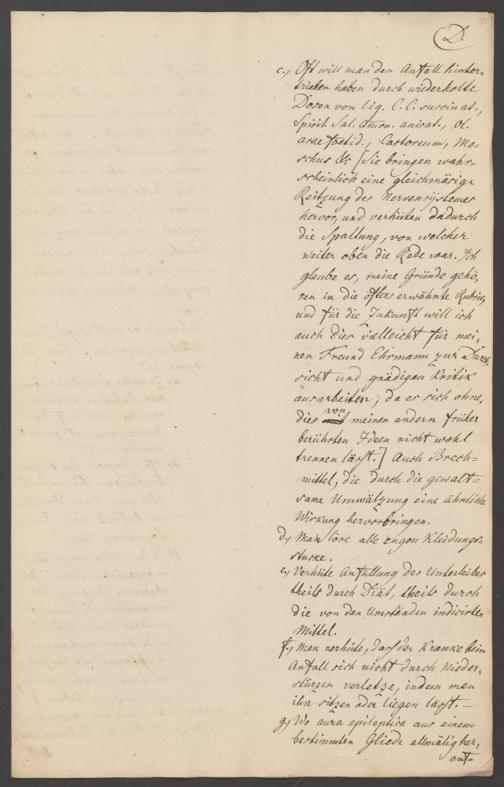 D.
c.) Oft will man den Anfall hinter-
trieben haben durch wiederholte
Dosen von liq. C. C. succinat.,
Spirit. Sal. amon. anisat., Ol.
asae foetid., Castoreum, Mo-
schus &c [Sie bringen wahr-
scheinlich eine gleichmäsige
Reitzung des Nervensystemes
hervor, und verhüten dadurch
die Spaltung, von welcher
weiter oben die Rede war. Ich
glaube es, meine Gründe gehö-
ren in die öfters erwähnte Rubrik,
und für die Zukunft will ich
auch dies vielleicht für mei-
nen Freund Ehrmann zur Durch-
sicht und gnädigen Kritik
ausarbeiten, da es sich ohne-
dies von meinen andern früher
berührten Ideen nicht wohl
trennen lässt.] Auch Brech-
mittel, die durch die gewalt-
same Umwälzung eine ähnliche
Wirkung hervorbringen.
d.) Man löse alle engen Kleidungs-
stücke.
e.) Verhüte Anfüllung des Unterleibes
theils durch Diät, theils durch
die von den Umständen indicirten
Mittel.
f.) Man verhüte, dass der Kranke beim
Anfall sich nicht durch Nieder-
stürzen verletze, indem man
ihn sitzen oder liegen lässt. –
g.) Wo aura epileptica aus einem
bestimmten Gliede allmälig her-
auf-